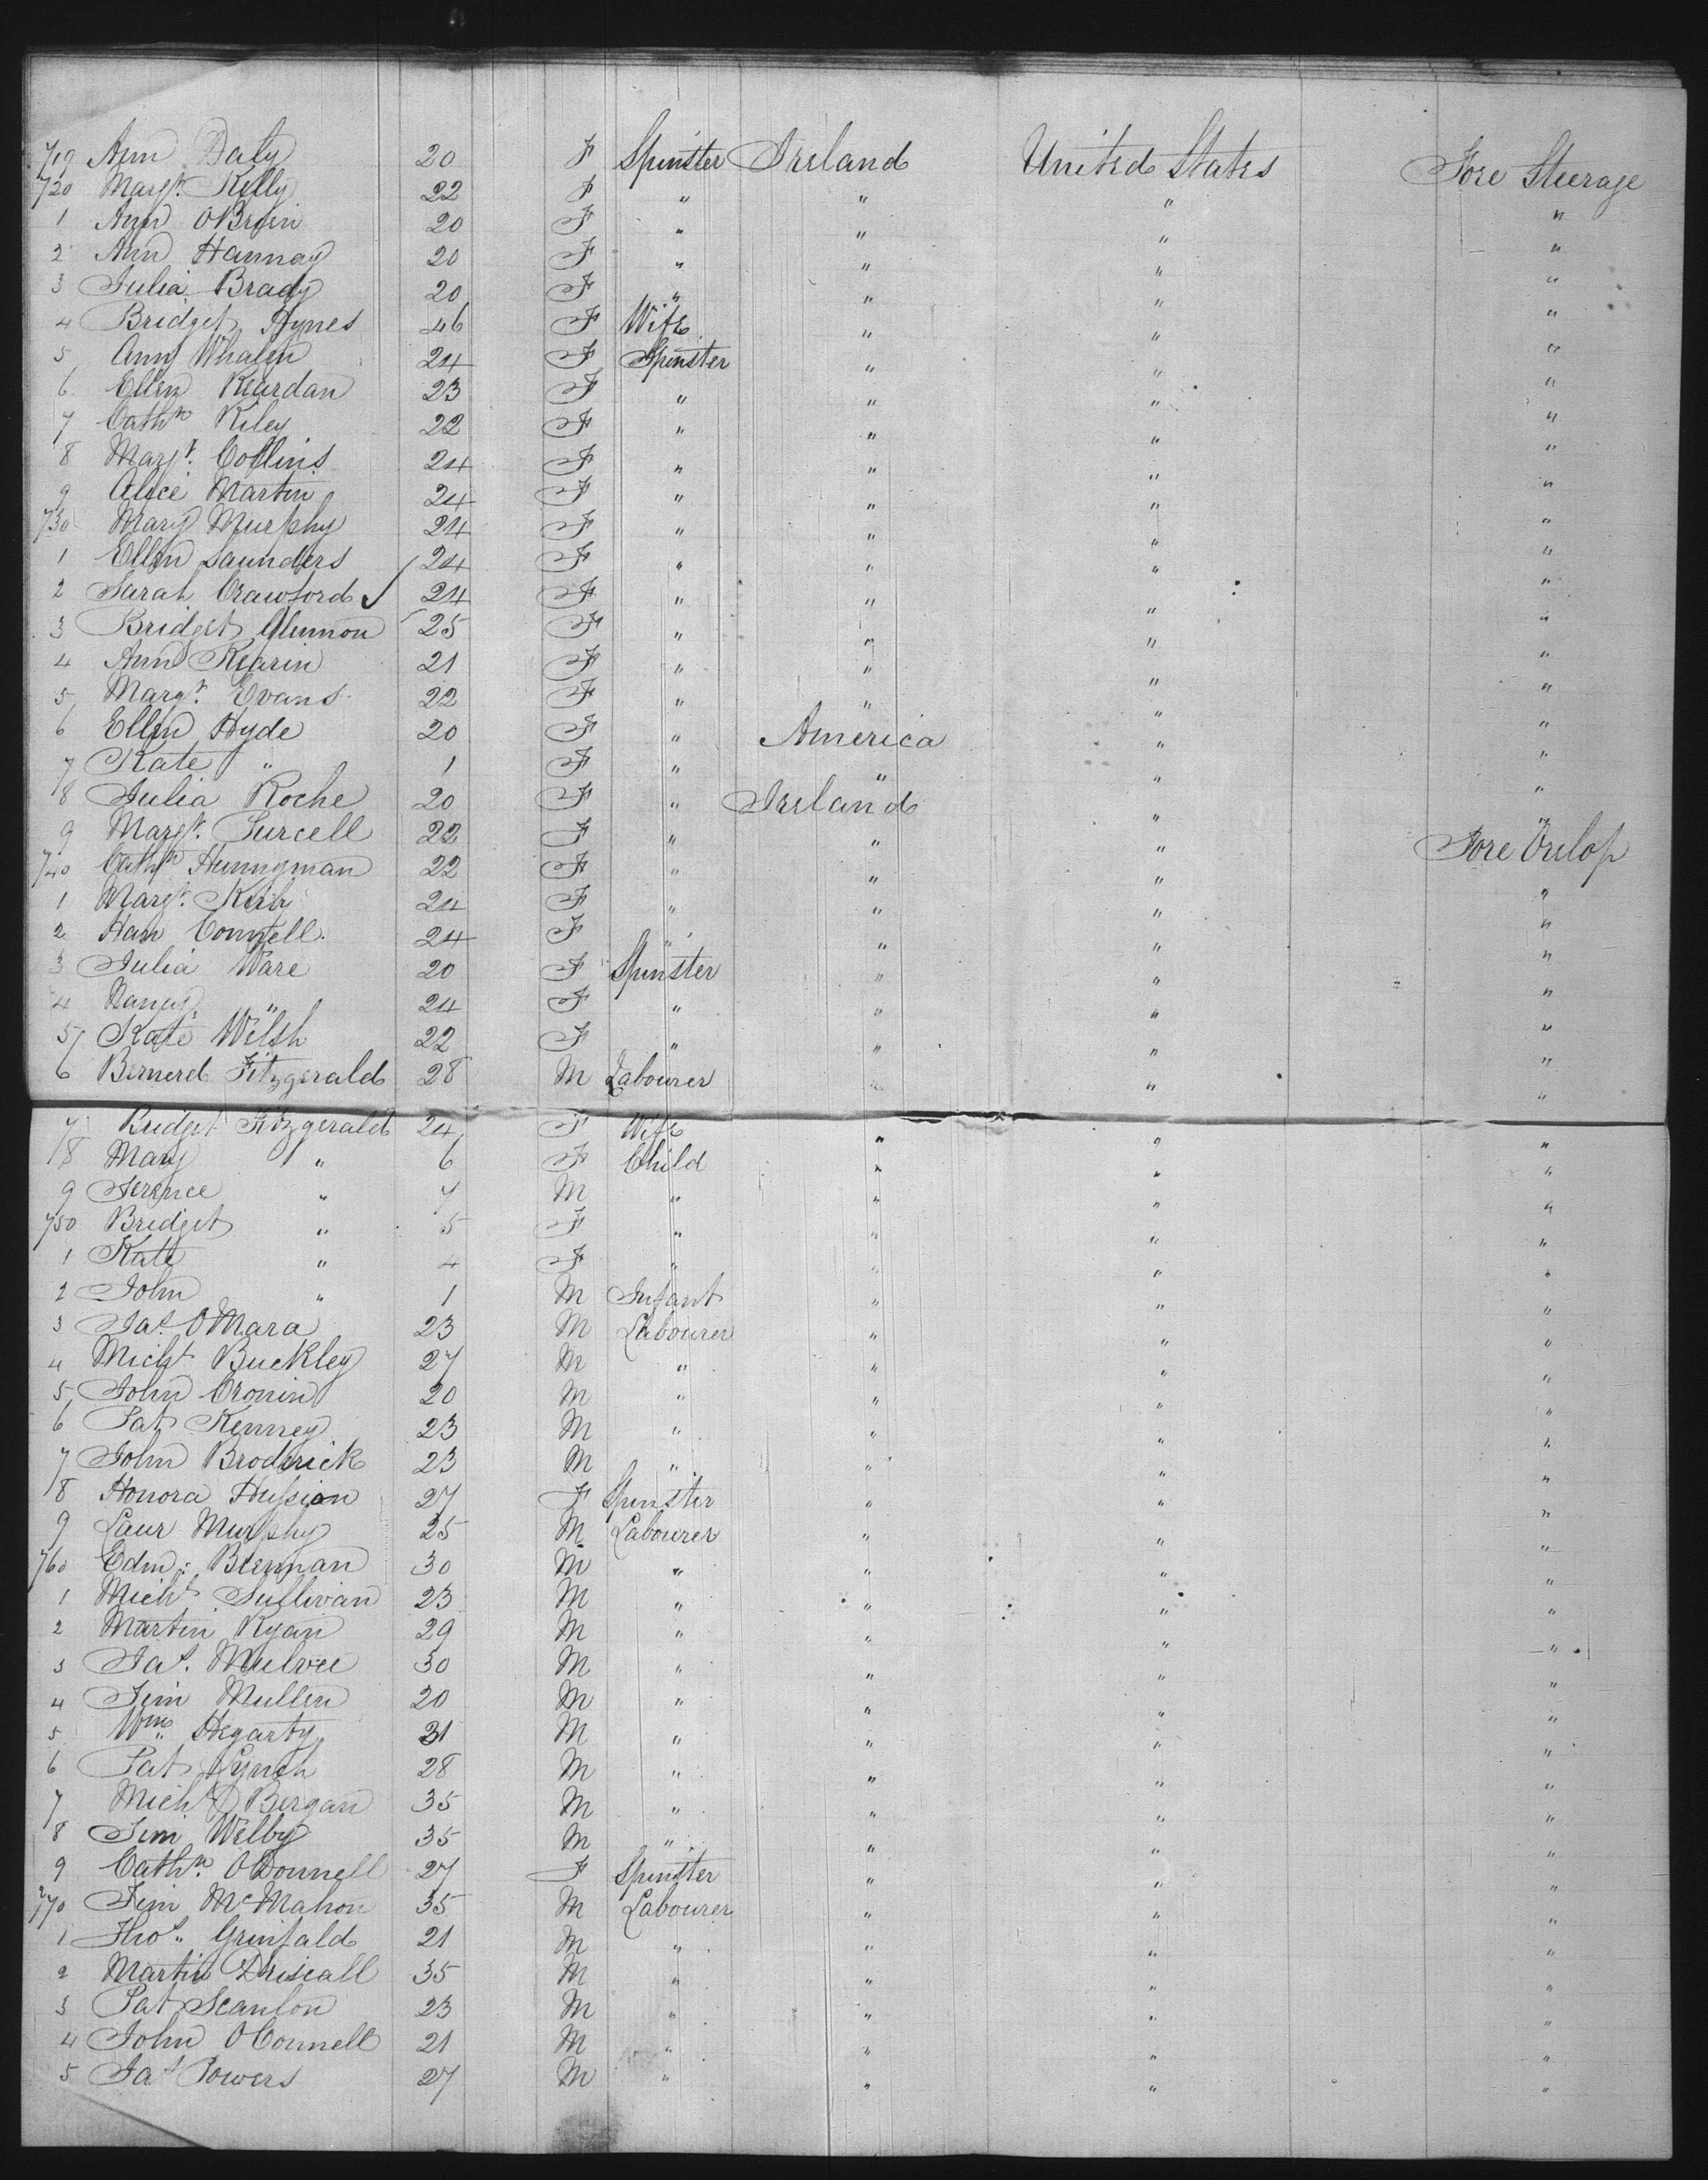 719 Ann Daly 20 F Spinster Ireland United States Fore Steerage
720 Margt. Kelly 22 F " " " "
1 Ann OBrien 20 F " " " "
2 Ann Hannay 20 F " " " "
3 Julia Brady 20 F " " " "
4 Bridget Hynes 46 F Wife " " "
5 Ann Whalen 24 F Spinster " " "
6 Ellen Reardan 23 F " " " "
7 Cathn Riley 22 F " " " "
8 Margt. Collins 24 F " " " "
9 Alice Martin 24 F " " " "
730 Mary Murphy 24 F " " " "
1 Ellen Saunders 24 F " " " "
2 Sarah Crawford 24 F " " " "
3 Bridget Glumon 25 F " " " "
4 Ann Kearin 21 F " " " "
5 Margt. Evans 22 F " " " "
6 Ellen Hyde 20 F " America " "
7 Kate " 1 F " " " "
8 Julia Roche 20 F " Ireland " "
9 Margt. Purcell 22 F " " " "
740 Cathn Hunngman 22 F " " " Fore Orelop
1 Margt. Kirby 24 F " " " "
2 Han Connell 24 F " " " "
3 Julia Ware 20 F Spinster " " "
4 Nancy " 24 F " " " "
5 Kate Welsh 22 F " " " "
6 Bernerd Fitzgerald 28 M Labourer " " "
7 Bridget Fitzgerald 24 F Wife " " "
8 Mary " 6 F Child " " "
9 Terence " 7 M " " " "
750 Bridget " 5 F " " " "
1 Kate " 4 F " " " "
2 John " 1 M Infant " " "
3 Jas. OMara 23 M Labourer " " "
4 Michl Buckley 27 M " " " "
5 John Cronin 20 M " " " "
6 Pat Kenney 23 M " " " "
7 John Broderick 23 M " " " "
8 Honora Hussian 27 F Spinster " " "
9 Laur Murphy 25 M Labourer " " "
760 Edm: Brennan 30 M " " " "
1 Michl Sullivan 23 M " " " "
2 Martin Ryan 29 M " " " "
3 Jas. Mulvee 30 M " " " "
4 Jim Mullen 20 M " " " "
5 Wm Hegarty 31 M " " " "
6 Pat Lynch 28 M " " " "
7 Michl Bergan 35 M " " " "
8 Jim Welby 35 M " " " "
9 Cathn. ODonnell 27 F Spinster " " "
770 Jim McMahon 35 M Labourer " " "
1 Thos. Grinfald 21 M " " " "
2 Martin Driscall 35 M " " " "
3 Pat Scanlon 23 M " " " "
4 John OConnell 21 M " " " "
5 Jas Powers 27 M " " " "